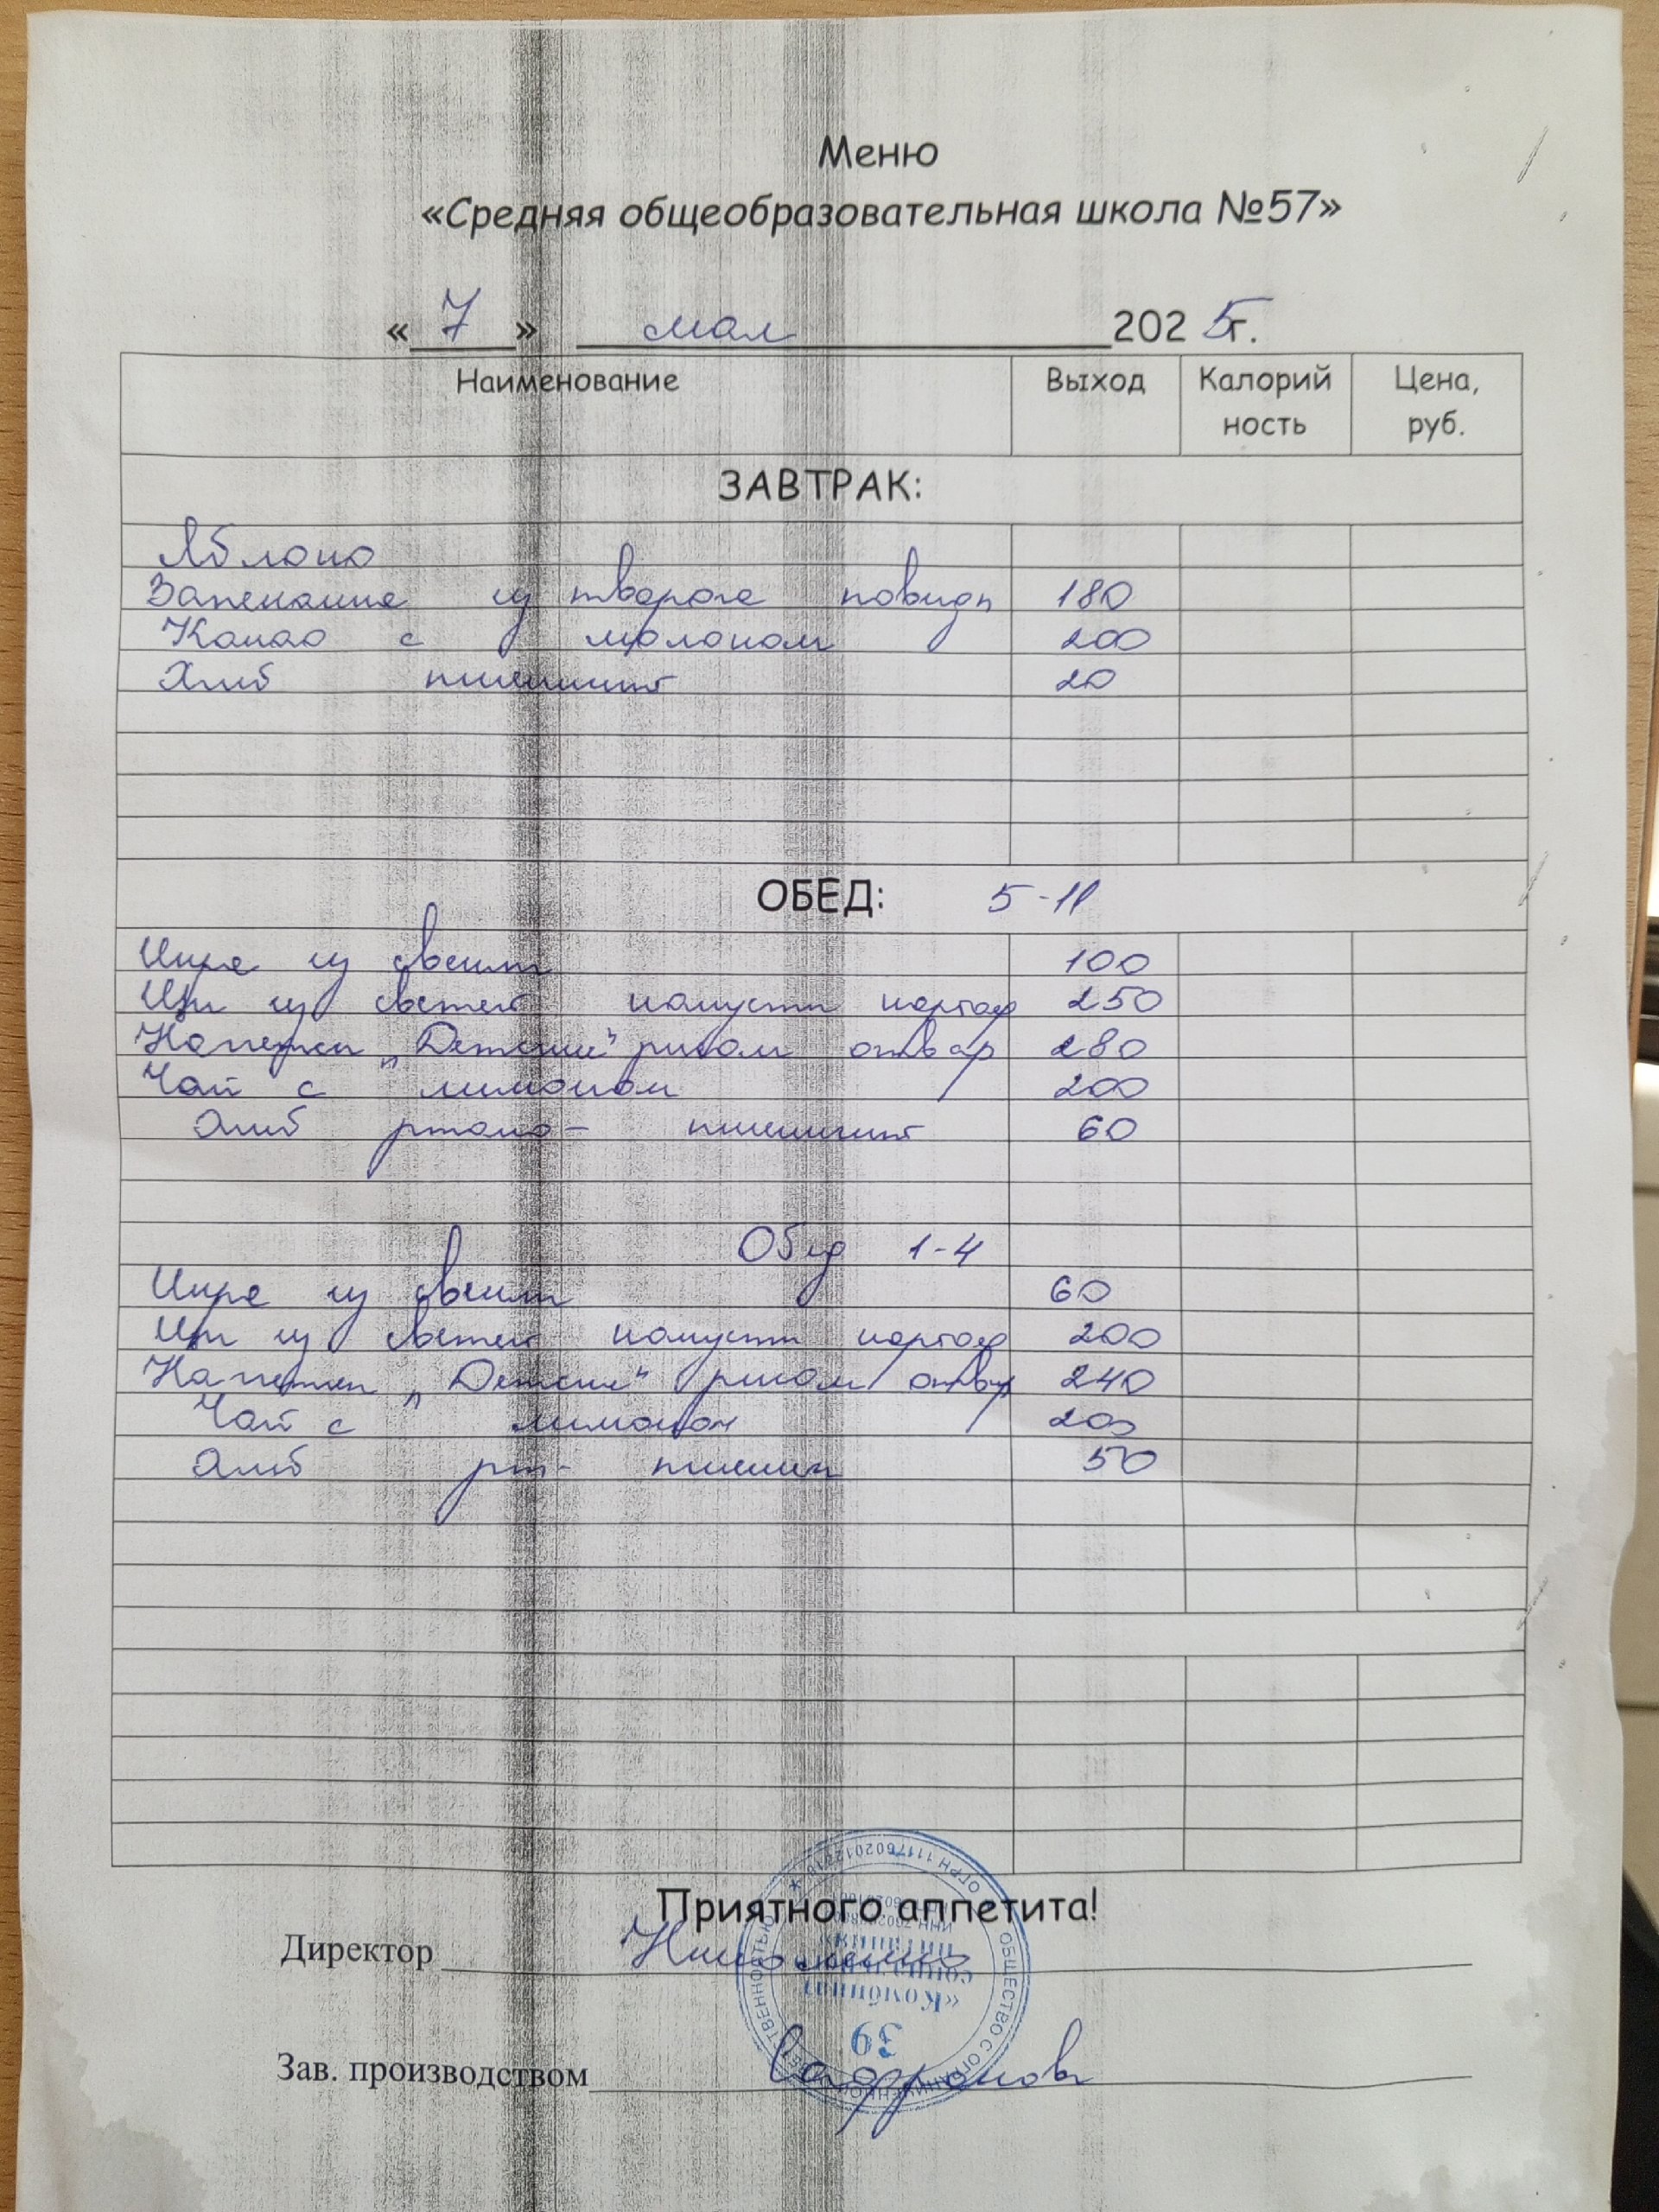 Меню
«Средняя общеобразовательная школа №57»
«7» мая 2025г.
Наименование Выход Калорий ность Цена, руб.
ЗАВТРАК:
Яблоко
Запеканка из творога повидл 180
Какао с молоком 200
Хлеб пшеничн 20
ОБЕД: 5-11
Икра из свеклы 100
Щи из свежей капусты картоф 250
Наггетсы „Детские" рисом отвар 280
Чай с лимоном 200
Хлеб ржано- пшеничн 60
Обед 1-4
Икра из свеклы 60
Щи из свежей капусты картоф 200
Наггетсы „Детские" рисом отвар 240
Чай с лимоном 200
Хлеб рж- пшенич 50
Приятного аппетита!
Директор
Зав. производством Сафронова
ОБЩЕСТВО С ОГРАНИЧЕННОЙ ОТВЕТСТВЕННОСТЬЮ
«Комбинат социального питания»
39